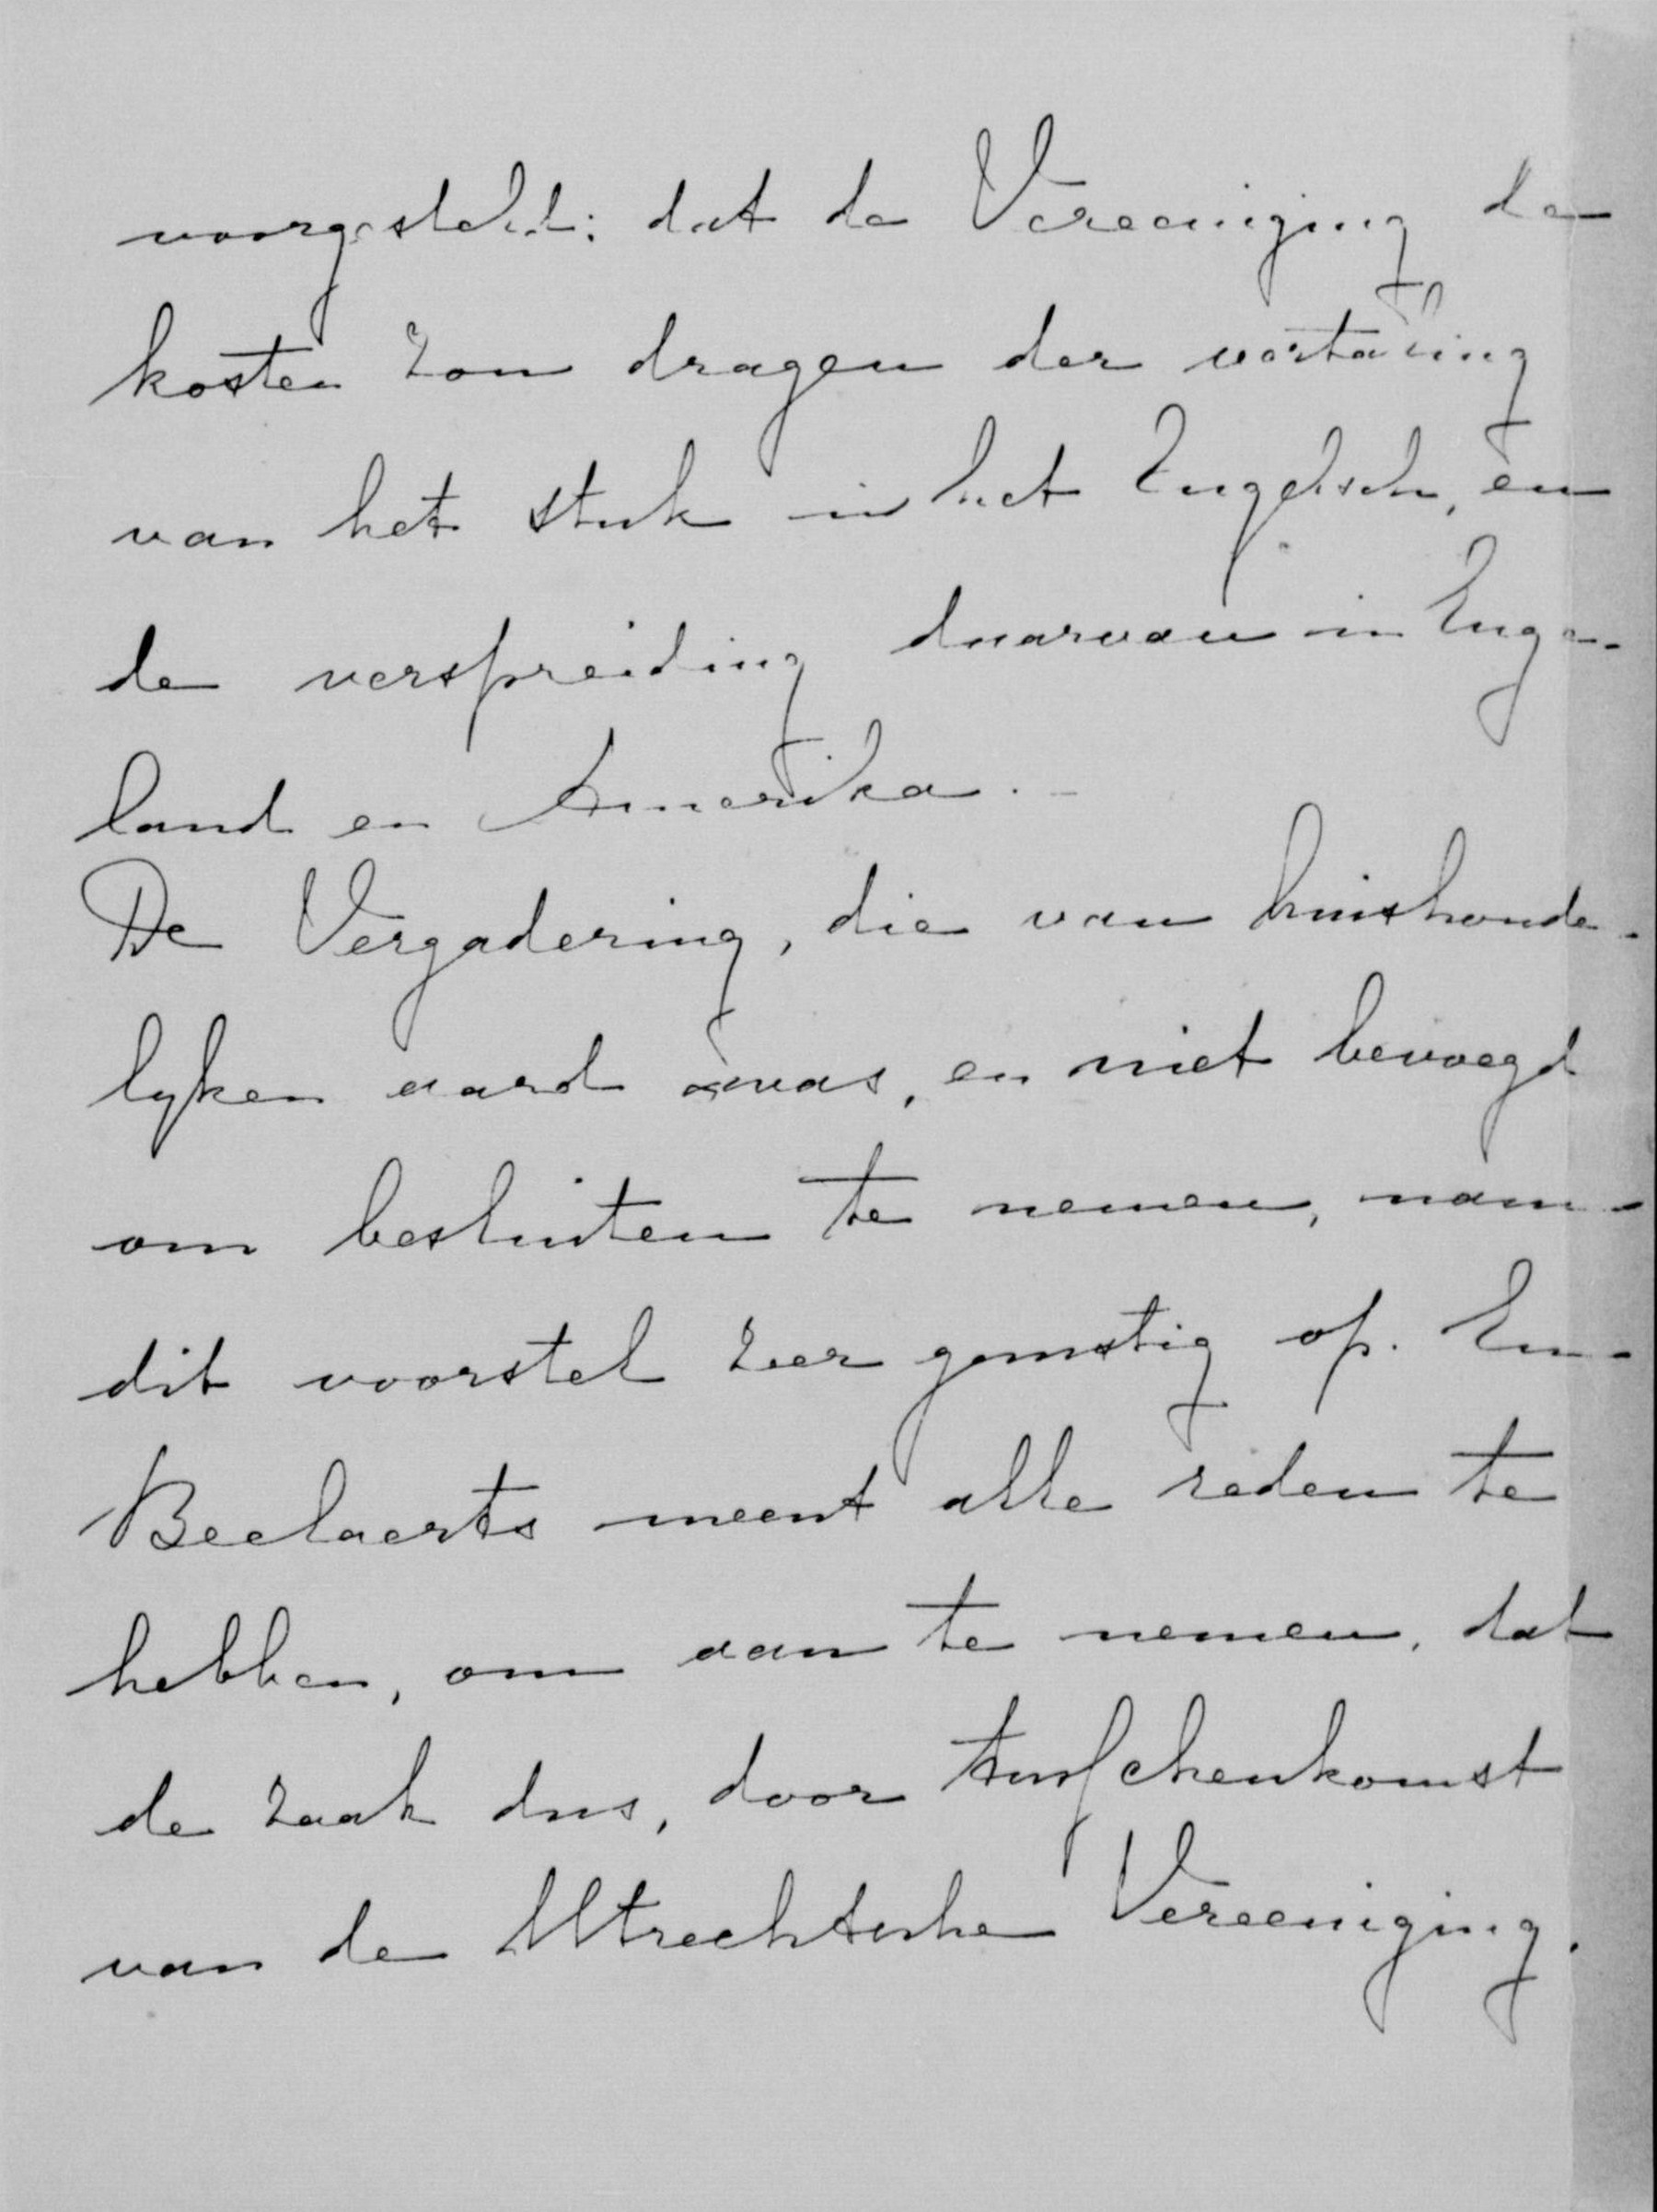 voorgesteld: dat de Vereeniging de
kosten zou dragen der vertaling
van het stuk in het Engelsch, èn
de verspreiding daarvan in Enge-
land en Amerika. -
De Vergadering, die van huishoude-
lyken aard was, en niet bevoegd
om besluiten te nemen, nam
dit voorstel zeer gunstig op. En
Beelaerts meent alle reden te
hebben, om aan te nemen, dat
de zaak dus, door tusschenkomst
van de Utrechtsche Vereeniging.